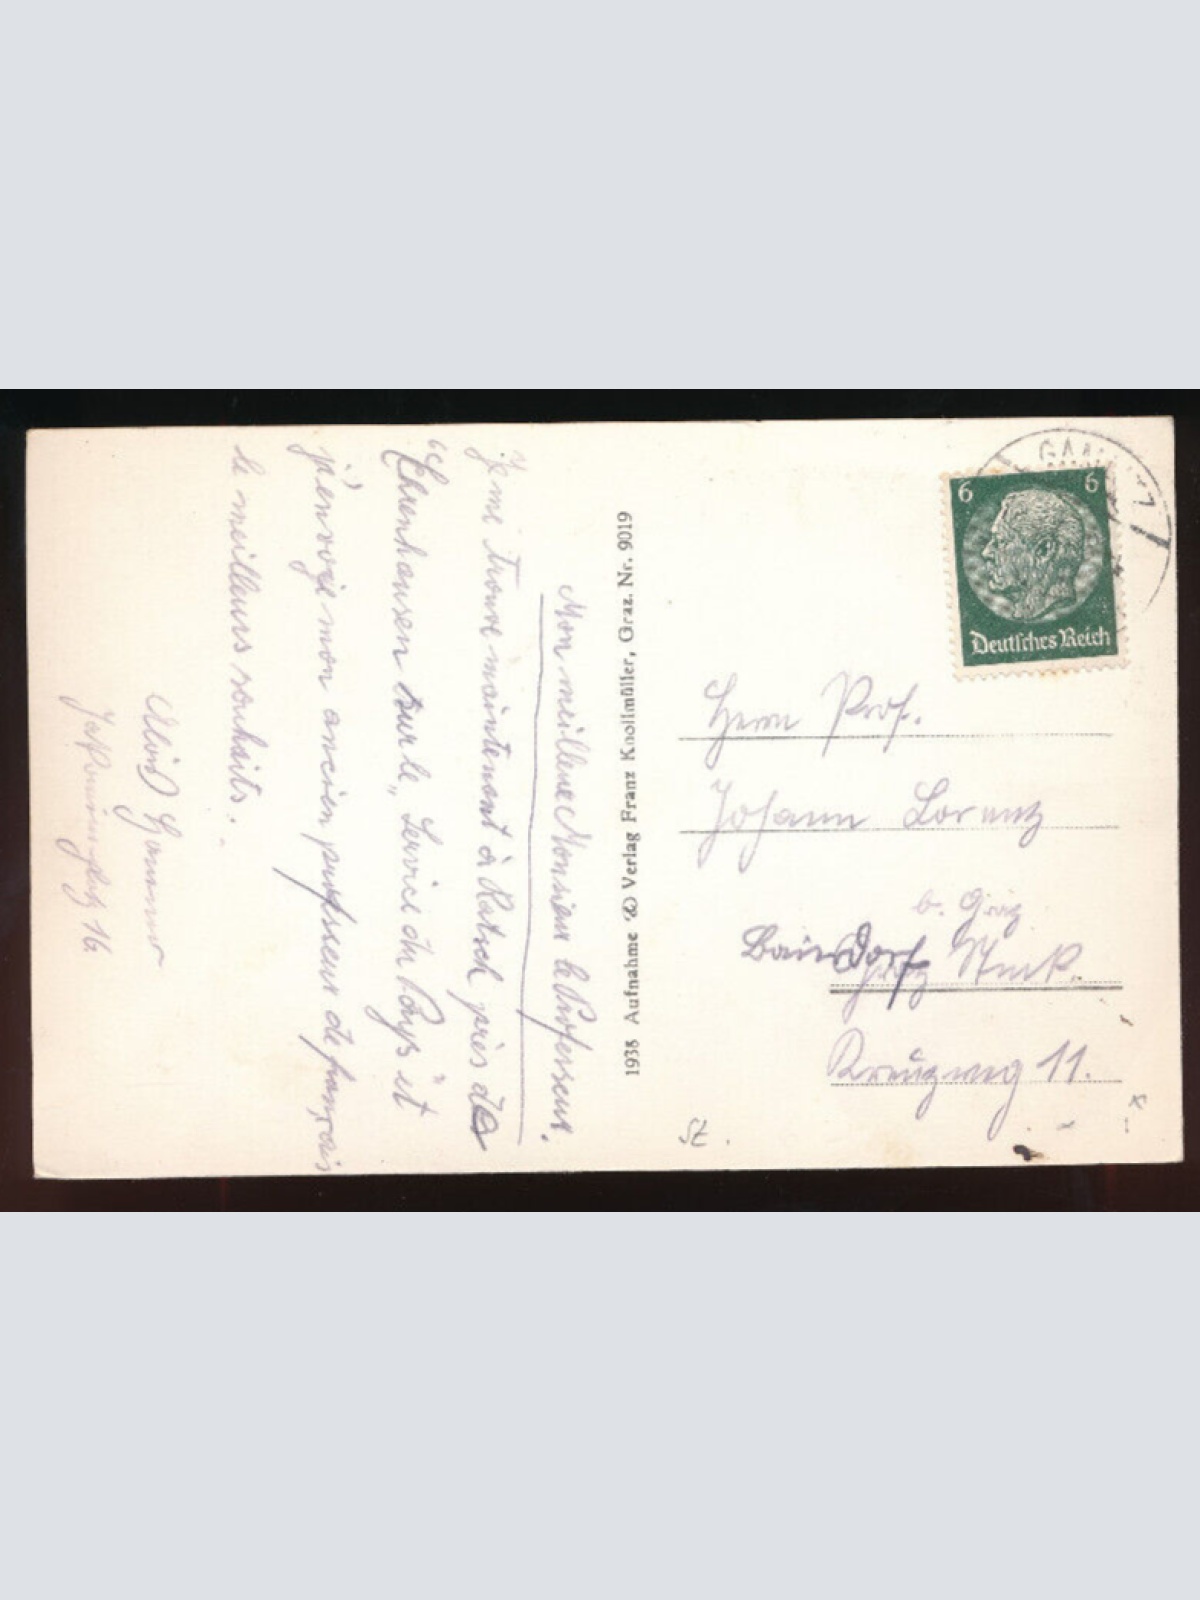 Mon meilleur Monsieur le Professeur.
Je me trouve maintenant à Ratsch près de
"Ehrenhausen sur le „Service du Pays" et
j'envoie mon ancien professeur de français
le meilleurs souhaits.
Alois
Jakominiplatz 16.
1938 Aufnahme Verlag Franz Knollmüller, Graz. Nr. 9019
6 6
Deutsches Reich
Herrn Prof.
Johann Lorenz
b. Graz
Kreuzweg 11.
SZ.